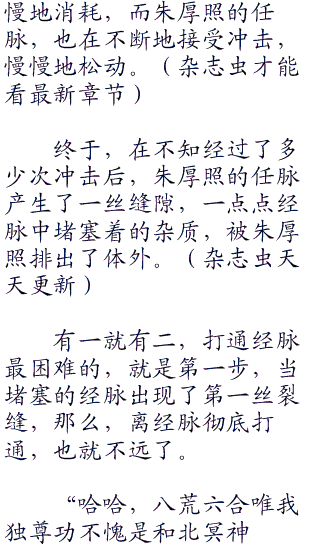 慢地消耗，而朱厚照的任
脉，也在不断地接受冲击，
慢慢地松动。（杂志虫才能
看最新章节）
终于，在不知经过了多
少次冲击后，朱厚照的任脉
产生了一丝缝隙，一点点经
脉中堵塞着的杂质，被朱厚
照排出了体外。（杂志虫天
天更新）
有一就有二，打通经脉
最困难的，就是第一步，当
堵塞的经脉出现了第一丝裂
缝，那么，离经脉彻底打
通，也就不远了。
“哈哈，八荒六合唯我
独尊功不愧是和北冥神